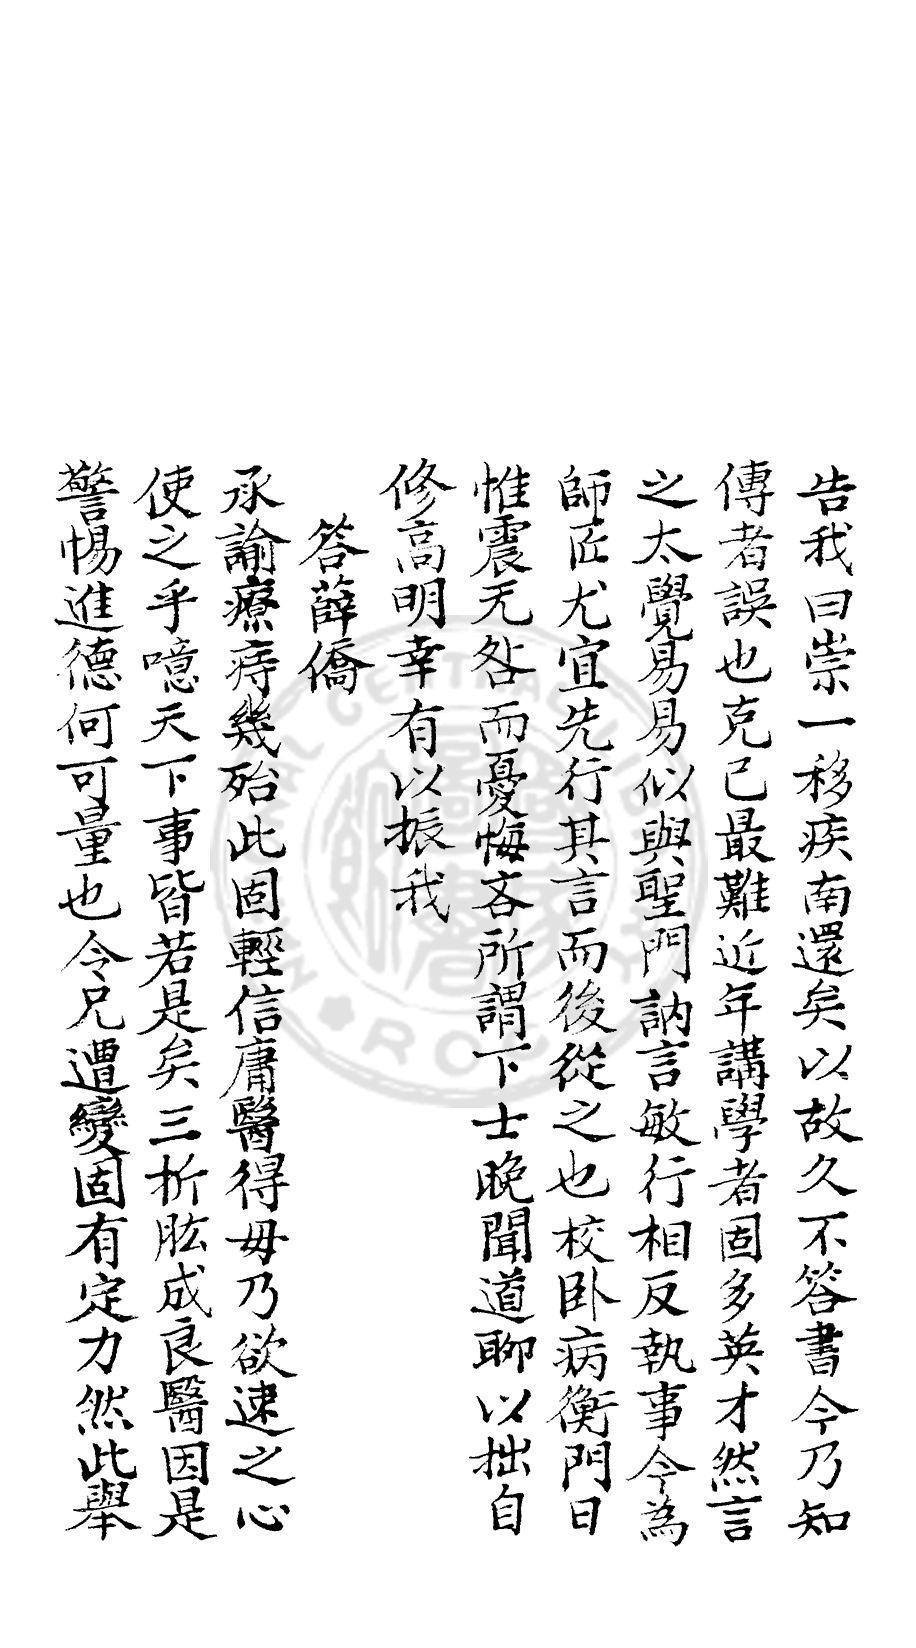 告我曰崇一移疾南還矣以故久不答書今乃知
傳者誤也克己最難近年講學者固多英才然言
之太覺易易似與聖門訥言敏行相反執事今為
師匠尤宜先行其言而後從之也校卧病衡門日
惟震无咎而憂悔吝所謂下士晚聞道聊以拙自
修高明幸有以振我
答薛僑
承諭療痔幾殆此固輕信庸醫得毋乃欲速之心
使之乎噫天下事皆若是矣三折肱成良醫因是
警惕進德何可量也令兄遭變固有定力然此舉